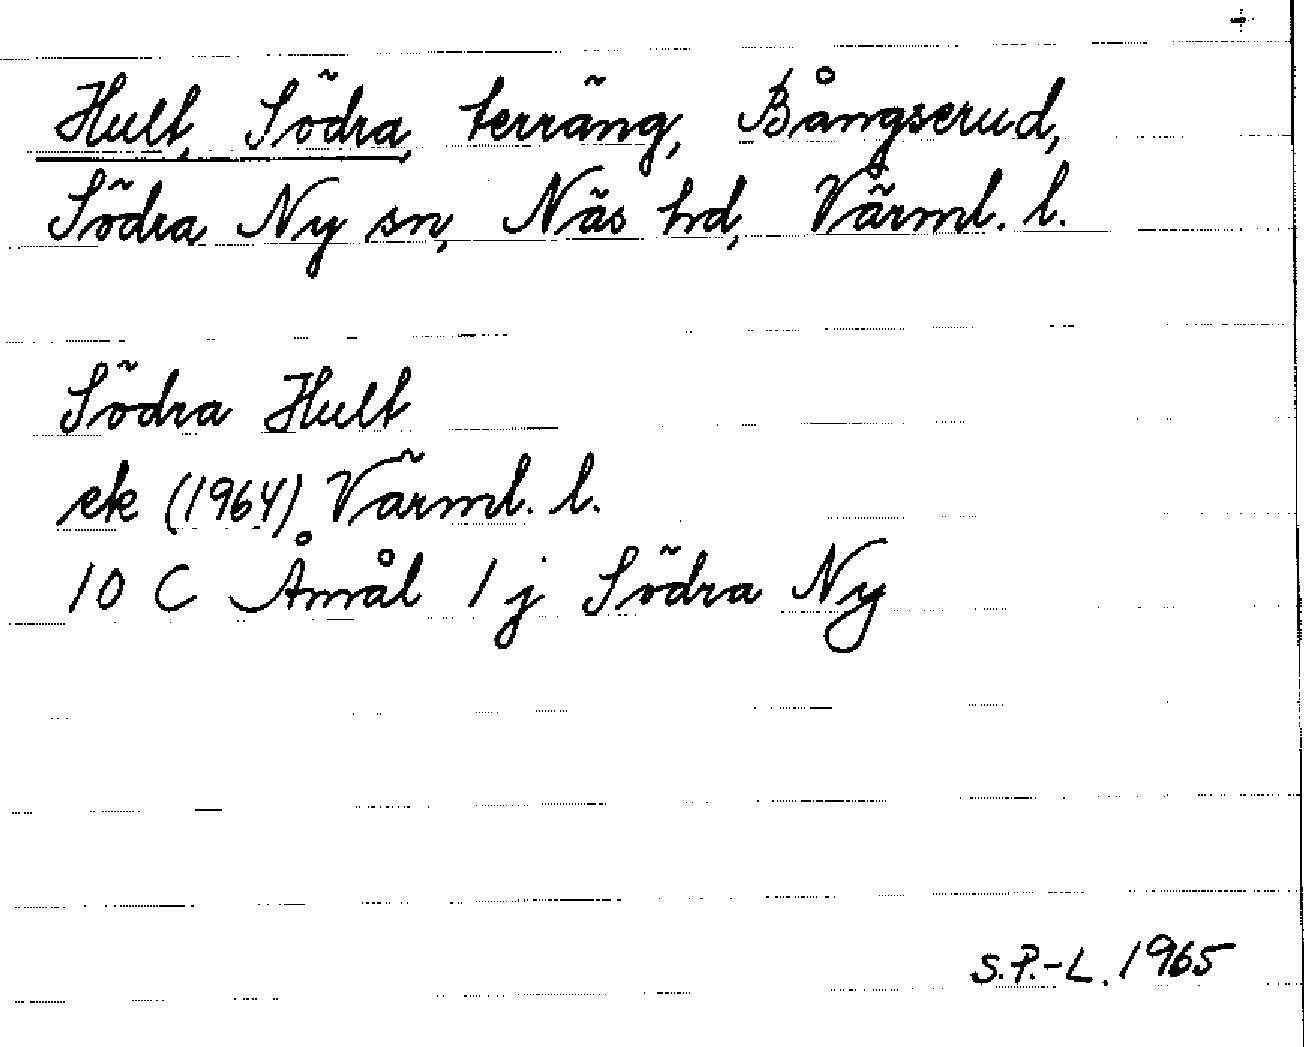 Hult, Södra, terräng, Bångserud,
Södra Ny sn, Näs hd, Värml. l.
Södra Hult
ek (1964) Värml. l.
10 C Åmål 1 j Södra Ny
S.P.-L. 1965